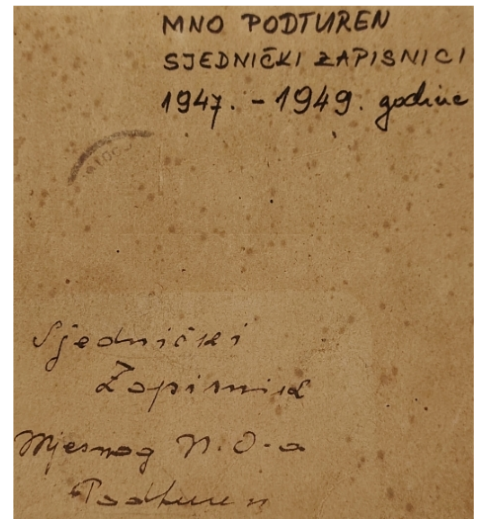 MNO PODTUREN
SJEDNIČKI ZAPISNICI
1947. - 1949. godine
Sjednički
Zapisnik
Mjesnog N.O-a
Podturen